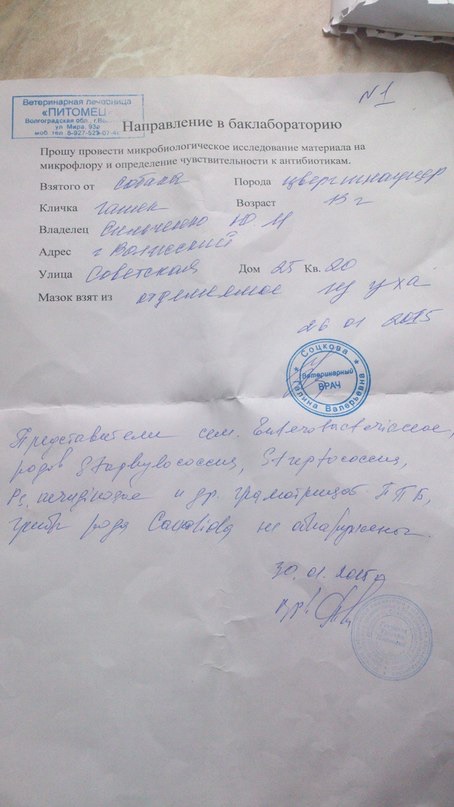 N1
Ветеринарная лечебница
«ПИТОМЕЦ»
Волгоградская обл., г.
ул. Мира, 93а
моб. тел. 8-927-529-07-
Направление в баклабораторию
Прошу провести микробиологическое исследование материала на
микрофлору и определение чувствительности к антибиотикам.
Взятого от собаки Порода цвергшнауцер
Кличка Возраст 13 г
Владелец Ю. И
Адрес г Волжский
Улица Советская Дом 25 Кв. 20
Мазок взят из отделяемое из уха
26 01 2015
Соцкова
Ветеринарный
ВРАЧ
Галина Валерьевна
Представители сем. Enterobacteriaceae,
родов Staphylococcus, Streptococcus,
Ps. и др. грамотрицат ГПБ,
грибы рода Candida не обнаружены.
30. 01. 2015